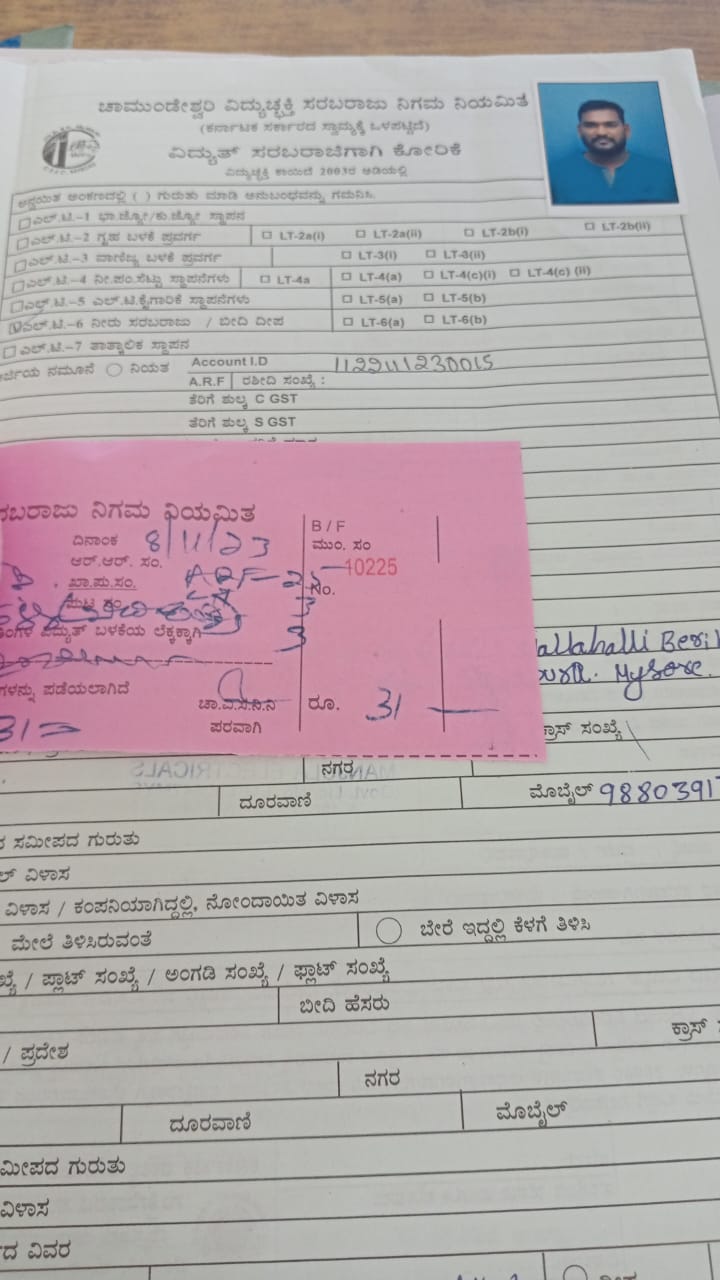 ಚಾಮುಂಡೇಶ್ವರಿ ವಿದ್ಯುಚ್ಛಕ್ತಿ ಸರಬರಾಜು ನಿಗಮ ನಿಯಮಿತ
(ಕರ್ನಾಟಕ ಸರ್ಕಾರದ ಸ್ವಾಮ್ಯಕ್ಕೆ ಒಳಪಟ್ಟಿದೆ)
ವಿದ್ಯುತ್ ಸರಬರಾಜಿಗಾಗಿ ಕೋರಿಕೆ
ವಿದ್ಯುಚ್ಛಕ್ತಿ ಕಾಯಿದೆ 2003ರ ಅಡಿಯಲ್ಲಿ
ಅನ್ವಯಿತ ಅಂಕಣದಲ್ಲಿ ( ) ಗುರುತು ಮಾಡಿ ಅನುಬಂಧವನ್ನು ಗಮನಿಸಿ.
ಎಲ್.ಟಿ.-1 ಭಾ.ಜ್ಯೋ/ಕು.ಜ್ಯೋ ಸ್ಥಾಪನ
ಎಲ್.ಟಿ.-2 ಗೃಹ ಬಳಕೆ ಪ್ರವರ್ಗ LT-2a(i) LT-2a(ii) LT-2b(i) LT-2b(ii)
ಎಲ್.ಟಿ.-3 ವಾಣಿಜ್ಯ ಬಳಕೆ ಪ್ರವರ್ಗ LT-3(i) LT-3(ii)
ಎಲ್.ಟಿ.-4 ನೀ.ಪಂ.ಸೆಟ್ಟು ಸ್ಥಾಪನೆಗಳು LT-4a LT-4(a) LT-4(c)(i) LT-4(c) (ii)
ಎಲ್.ಟಿ.-5 ಎಲ್.ಟಿ.ಕೈಗಾರಿಕೆ ಸ್ಥಾಪನೆಗಳು LT-5(a) LT-5(b)
ಎಲ್.ಟಿ.-6 ನೀರು ಸರಬರಾಜು / ಬೀದಿ ದೀಪ LT-6(a) LT-6(b)
ಎಲ್.ಟಿ.-7 ತಾತ್ಕಾಲಿಕ ಸ್ಥಾಪನ
ನಮೂನೆ ನಿಯತ Account I.D
A.R.F ರಶೀದಿ ಸಂಖ್ಯೆ :
ತೆರಿಗೆ ಶುಲ್ಕ C GST
ತೆರಿಗೆ ಶುಲ್ಕ S GST
ಸರಬರಾಜು ನಿಗಮ ನಿಯಮಿತ
B / F
ದಿನಾಂಕ 8/11/23
ಮುಂ. ಸಂ
ಆರ್.ಆರ್. ಸಂ.
10225
ಖಾ.ಪು.ಸಂ. ARF-
No.
ವಿದ್ಯುತ್ ಬಳಕೆಯ ಲೆಕ್ಕಕ್ಕಾಗಿ
ಪಡೆಯಲಾಗಿದೆ
ಚಾ.ವಿ.ಸ.ನಿ.ನಿ ರೂ. 31
ಪರವಾಗಿ
31=
Mysore.
ಕ್ರಾಸ್ ಸಂಖ್ಯೆ
ನಗರ
ದೂರವಾಣಿ ಮೊಬೈಲ್ 9880391
ಸಮೀಪದ ಗುರುತು
ವಿಳಾಸ
ವಿಳಾಸ / ಕಂಪನಿಯಾಗಿದ್ದಲ್ಲಿ, ನೋಂದಾಯಿತ ವಿಳಾಸ
ಮೇಲೆ ತಿಳಿಸಿರುವಂತೆ ಬೇರೆ ಇದ್ದಲ್ಲಿ ಕೆಳಗೆ ತಿಳಿಸಿ
/ ಪ್ಲಾಟ್ ಸಂಖ್ಯೆ / ಅಂಗಡಿ ಸಂಖ್ಯೆ / ಫ್ಲಾಟ್ ಸಂಖ್ಯೆ
ಬೀದಿ ಹೆಸರು
ಕ್ರಾಸ್
/ ಪ್ರದೇಶ
ನಗರ
ದೂರವಾಣಿ ಮೊಬೈಲ್
ಸಮೀಪದ ಗುರುತು
ವಿಳಾಸ
ವಿವರ